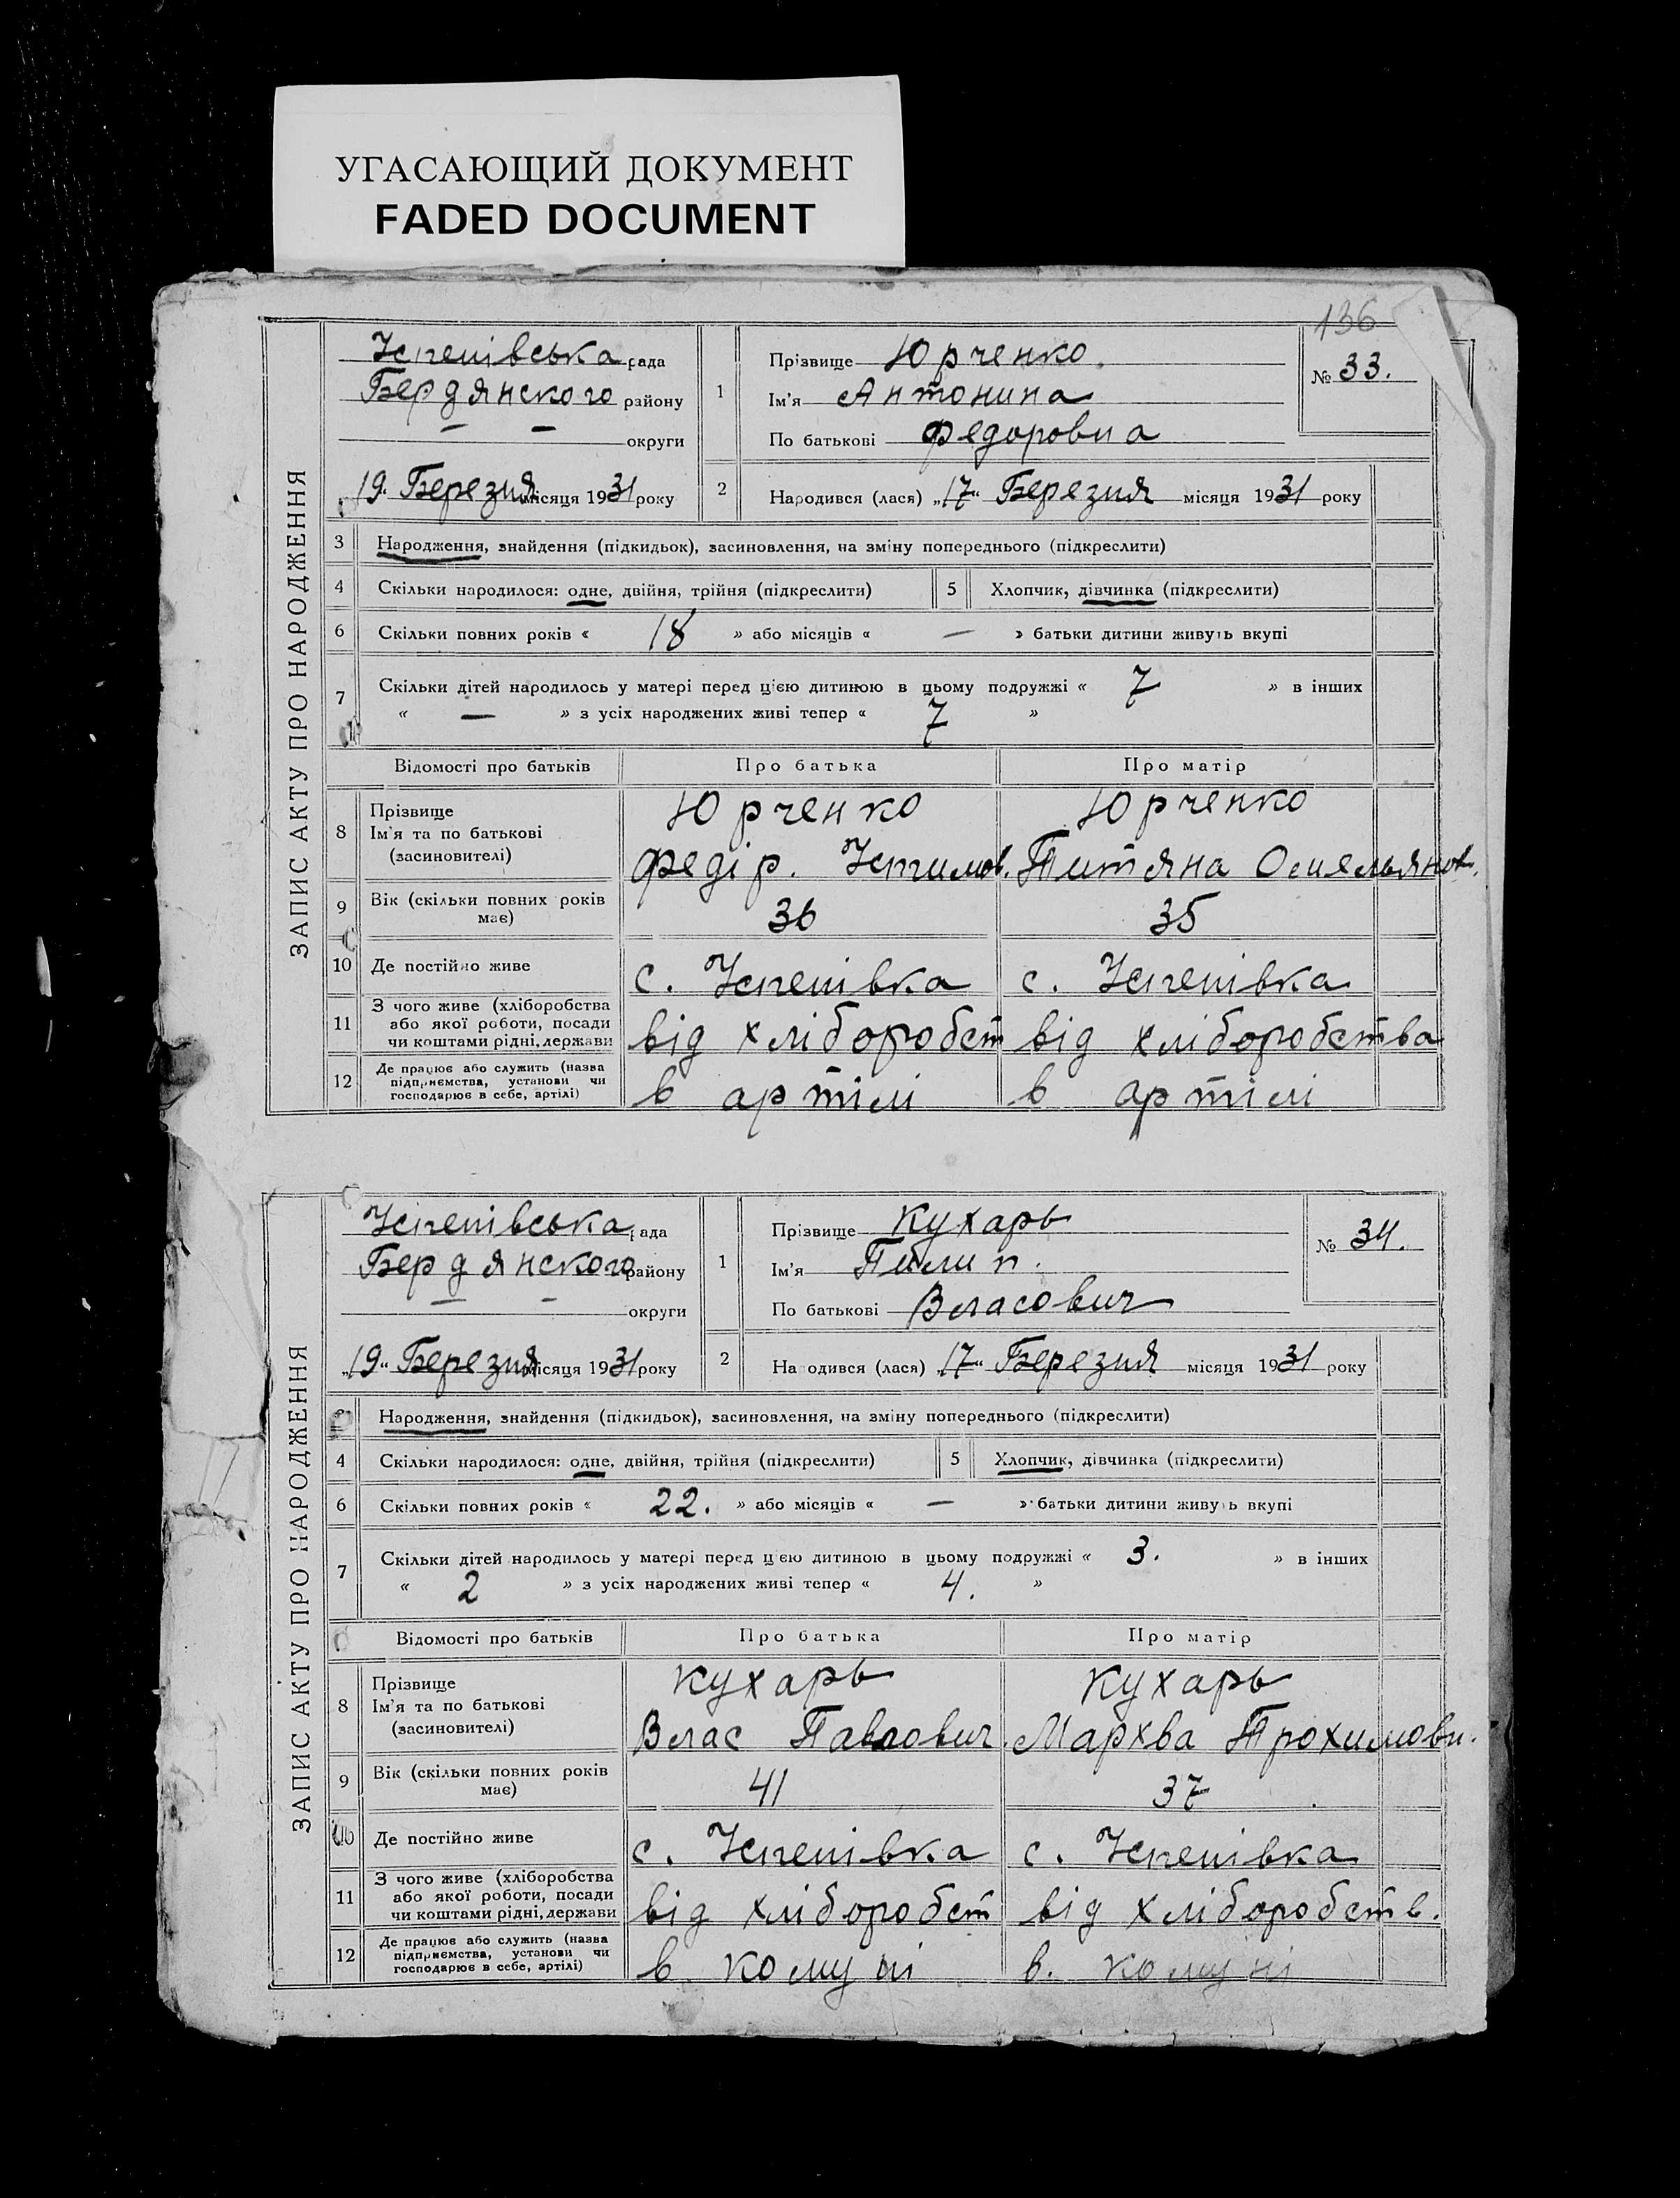 УГАСАЮЩИЙ ДОКУМЕНТ
FADED DOCUMENT
136
ЗАПИС АКТУ ПРО НАРОДЖЕННЯ
Успенівська рада
Бердянского району
— — округи
19 Березня місяця 1931 року
1
Прізвище Юрченко
Ім'я Антонина
По батькові Федоровна
№ 33.
2
Народився (лася) „17“ Березня місяця 1931 року
3 Народження, знайдення (підкидьок), засиновлення, на зміну попереднього (підкреслити)
4 Скільки народилося: одне, двійня, трійня (підкреслити) 5 Хлопчик, дівчинка (підкреслити)
6 Скільки повних років « 18 » або місяців « — » батьки дитини живуть вкупі
7 Скільки дітей народилось у матері перед цією дитиною в цьому подружжі « 7 » в інших
« — » з усіх народжених живі тепер « 7 »
Відомості про батьків Про батька Про матір
8 Прізвище Юрченко Юрченко
Ім'я та по батькові
(засиновителі) Федір. Устимов. Титяна Омельянов.
9 Вік (скільки повних років має) 36 35
10 Де постійно живе с. Успенівка с. Успенівка
11 З чого живе (хліборобства
або якої роботи, посади
чи коштами рідні, держави від хліборобст від хліборобства
12 Де працює або служить (назва
підприємства, установи чи
господарює в себе, артілі) в артілі в артілі
ЗАПИС АКТУ ПРО НАРОДЖЕННЯ
Успенівська рада
Бердянского району
— — округи
„19“ Березня місяця 1931 року
1
Прізвище Кухарь
Ім'я Пилип.
По батькові Власович
№ 34.
2
Народився (лася) „17“ Березня місяця 1931 року
Народження, знайдення (підкидьок), засиновлення, на зміну попереднього (підкреслити)
4 Скільки народилося: одне, двійня, трійня (підкреслити) 5 Хлопчик, дівчинка (підкреслити)
6 Скільки повних років « 22. » або місяців « — » батьки дитини живуть вкупі
7 Скільки дітей народилось у матері перед цією дитиною в цьому подружжі « 3. » в інших
« 2 » з усіх народжених живі тепер « 4. »
Відомості про батьків Про батька Про матір
8 Прізвище Кухарь Кухарь
Ім'я та по батькові
(засиновителі) Влас Павлович. Мархва Трохимовн.
9 Вік (скільки повних років має) 41 37
10 Де постійно живе с. Успенівка с. Успенівка
11 З чого живе (хліборобства
або якої роботи, посади
чи коштами рідні, держави від хліборобст від хліборобств.
12 Де працює або служить (назва
підприємства, установи чи
господарює в себе, артілі) в комуні в. комуні